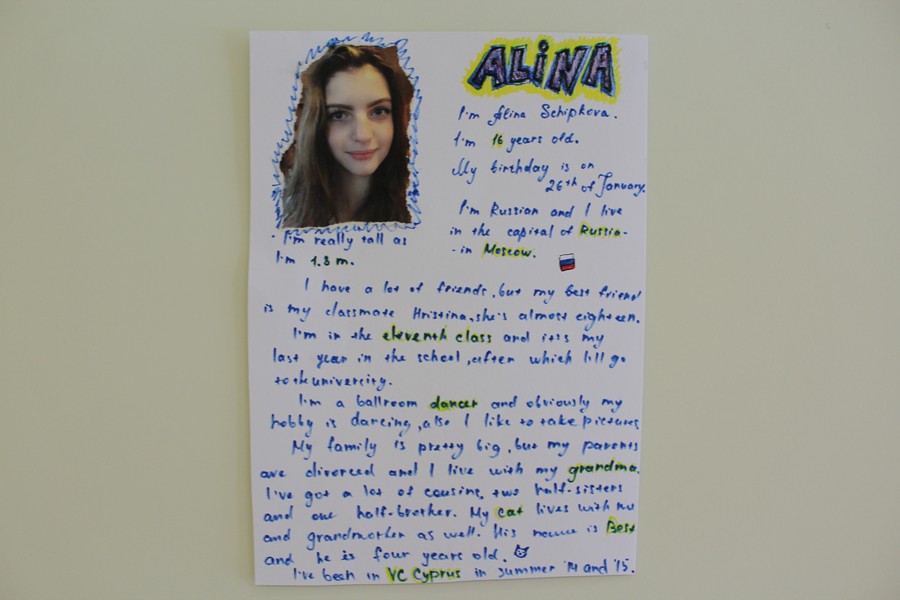 ALiNA
I'm Alina Schipkova.
I'm 16 years old.
My birthday is on
26th of January.
I'm Russian and I live
in the capital of Russia-
-in Moscow.
I'm really tall as
I'm 1.8 m.
I have a lot of friends, but my best friend
is my classmate Hristina, she's almost eighteen.
I'm in the eleventh class and it's my
last year in the school, after which I'll go
to the univercity.
I'm a ballroom dancer and obviously my
hobby is dancing, also I like to take pictures
My family is pretty big, but my parents
are divorced and I live with my grandma.
I've got a lot of cousins, two half-sisters
and one half-brother. My cat lives with me
and grandmother as well. His name is Best
and he is four years old.
I've been in VC Cyprus in summer '14 and '15.